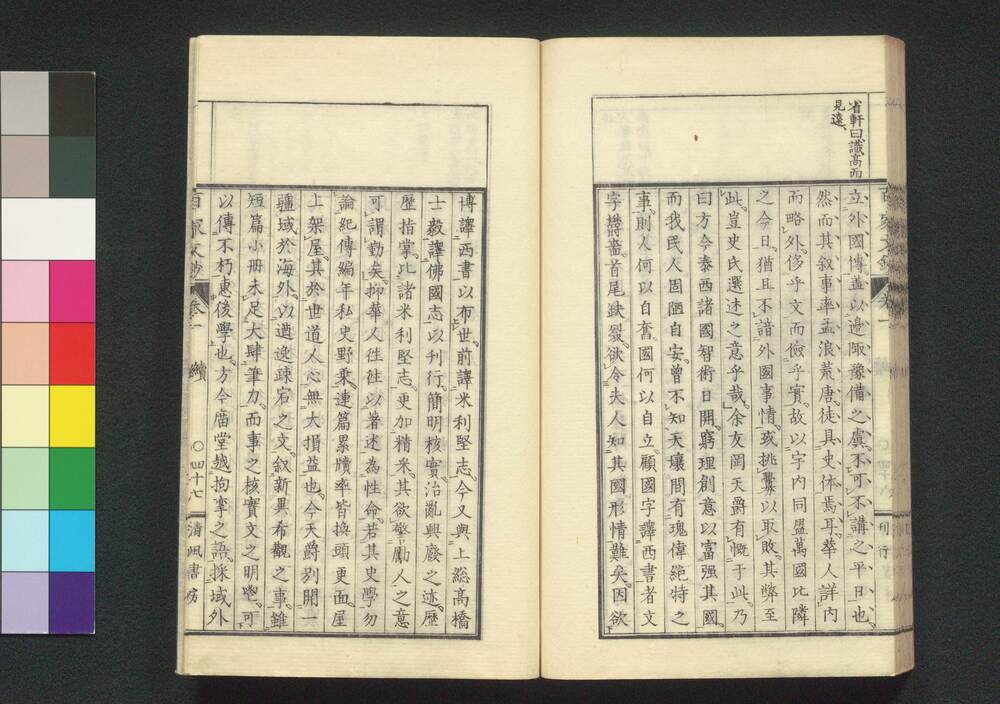 省軒曰、識高而
見遠、
立外國傳蓋以邊陬豫備之虞不可不講之平日也
然而其叙事率孟浪荒唐徒具史体焉耳華人詳內
而略外侈乎文而儉乎實故以宇內同盟萬國比隣
之今日猶且不諳外國事情或挑釁以取敗其弊至
此豈史氏選述之意乎哉余友岡天爵有慨于此乃
曰方今泰西諸國智術日開窮理創意以富强其國
而我民人固陋自安曾不知天壤間有瑰偉絕特之
事則人何以自奮國何以自立顧國字譯西書者文
字鬱嗇首尾缺裂欲令夫人知其國形情難矣因欲
博譯西書以布世前譯米利堅志今又與上總高橋
士毅譯佛國志以刊行簡明核實治亂興廢之迹歷
歷指掌此諸米利堅志更加精米其欲警勵人之意
可謂勤矣抑華人往往以著述為性命若其史學勿
論紀傳編年私史野乘連篇累牘率皆換頭更面屋
上架屋其於世道人心無大損益也今天爵別開一
疆域於海外以遒逸疎宕之文叙新異布觀之事雖
短篇小冊未足大肆筆力而事之核實文之明鬯可
以傳不朽惠後學也方今廟堂越拘攣之語採域外
百家文鈔 卷一 續 〇四十七 清風書房